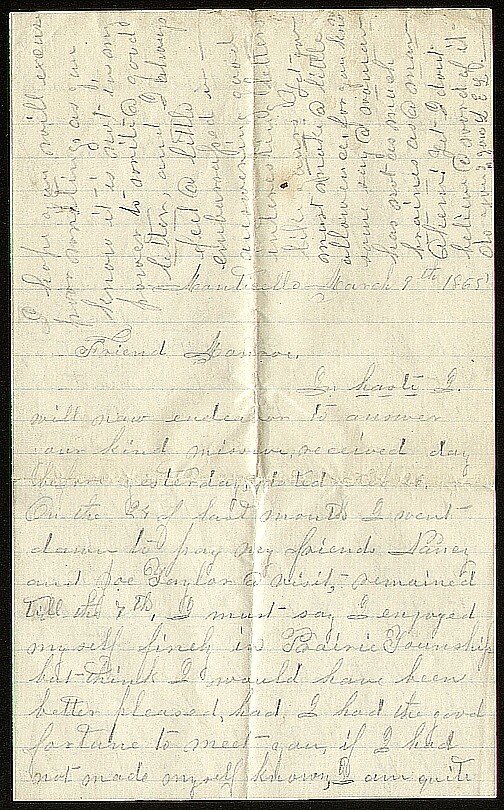 Monticello March 9th 1865
Friend Monroe.
In haste I
will now endeavor to answer
your kind missive, received day
before yesterday, dated
On the 24 of last month I went
down to pay my friends Nancy
and Joe Taylor a visit, remained
till the 7th, I must say I enjoyed
myself finely in Prairie Township
but think I would have been
better pleased, had I had the good
fortune to meet you, if I had
not made myself known, I am quite
I hope you will excuse
poor writing, as you
know it is not in my
power to write a good
letter, and I always
feel a little
embarrassed in
answering good
interesting letters
like yours. Yet you
must make a little
allowance, for you know
some say a woman
has not as much
braines as a man
Ahem! Yet I dont
believe a word of it
do you? yours E L D.